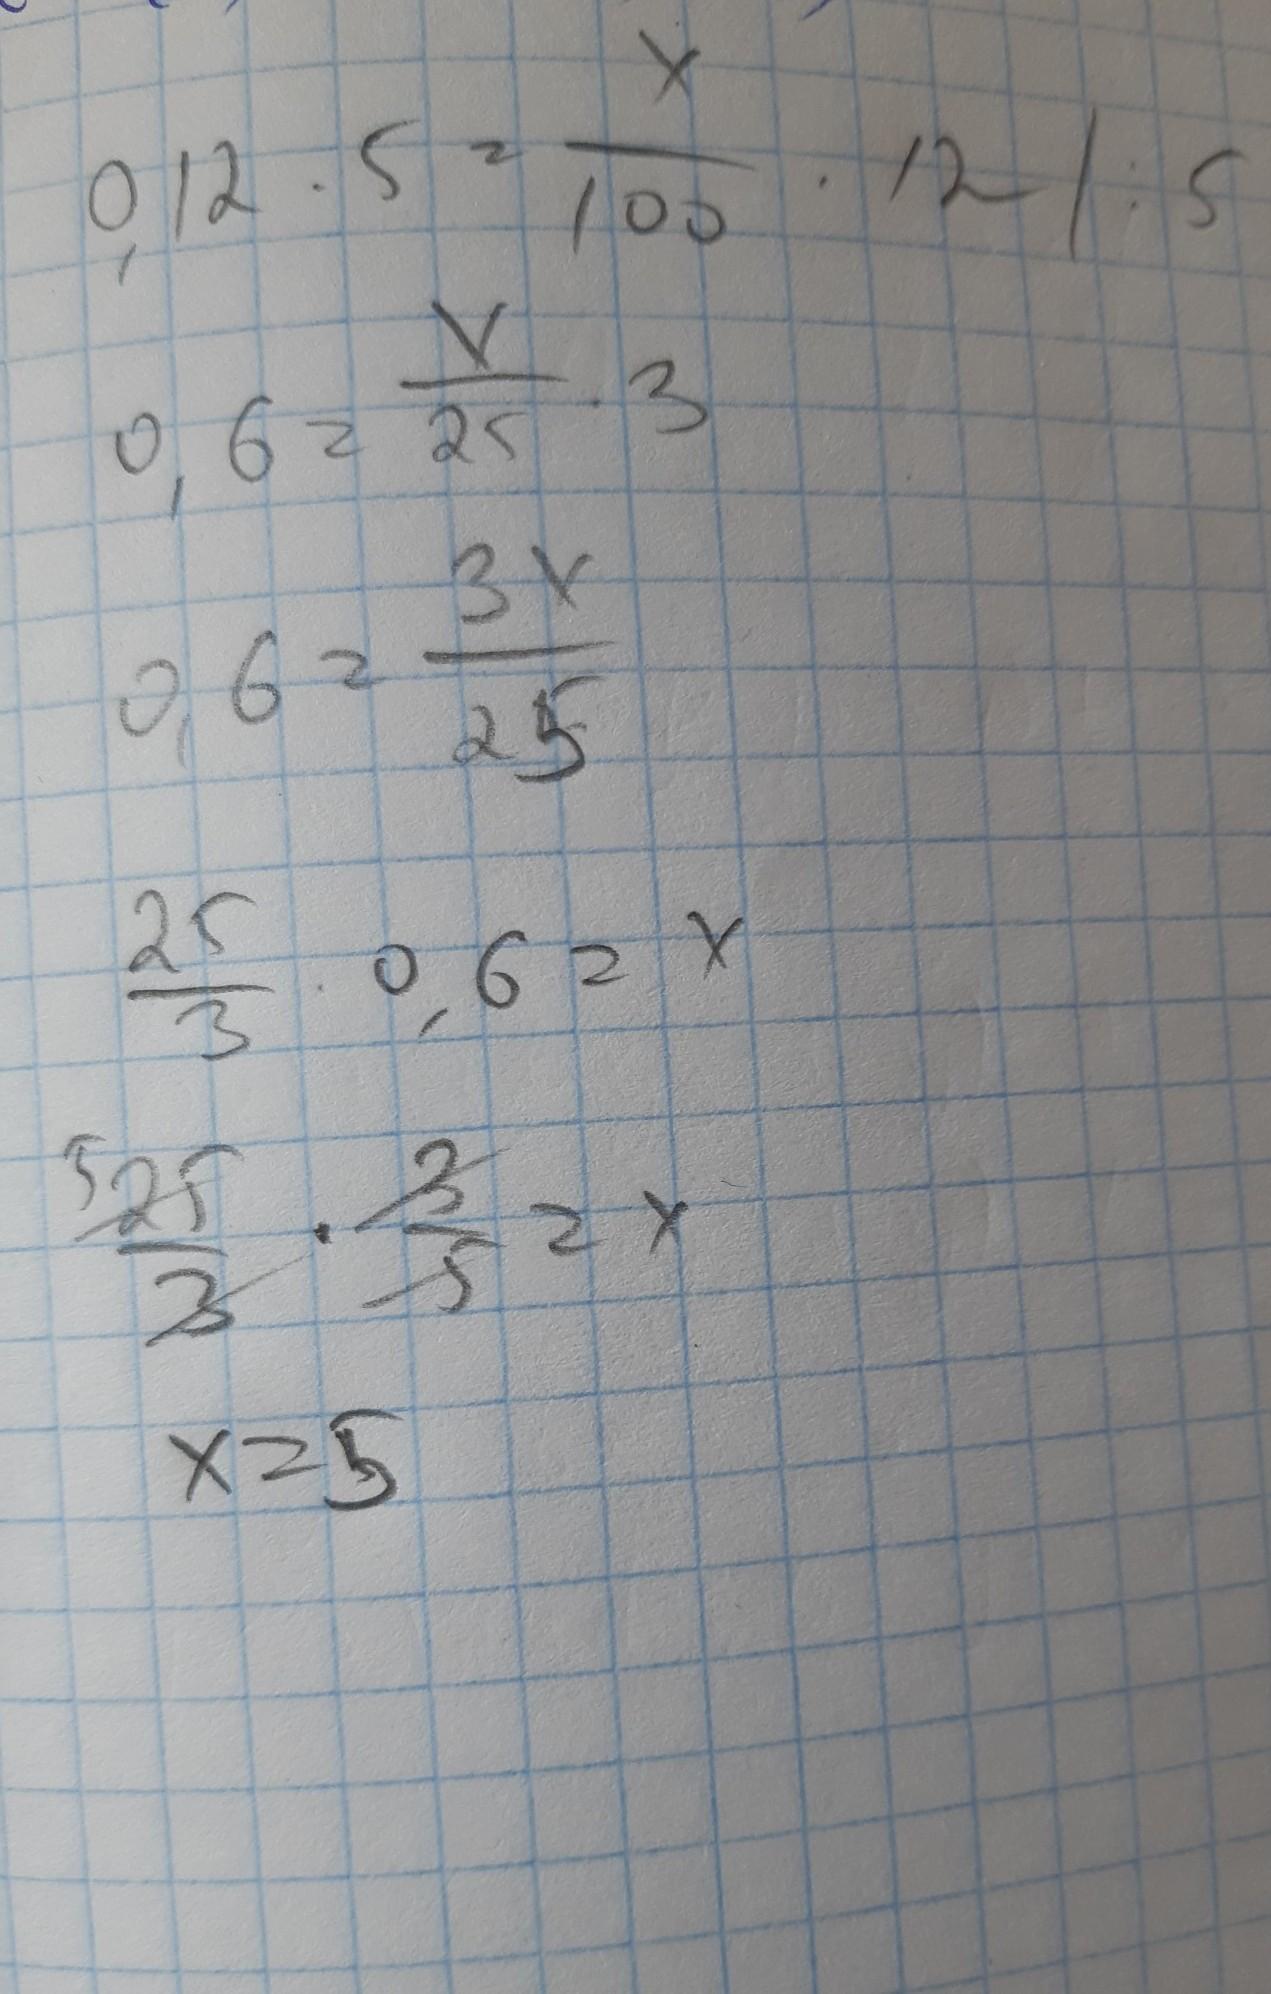 0,12 · 5 = x/100 · 12 | : 5
0,6 = x/25 · 3
0,6 = 3x/25
25/3 · 0,6 = x
5 25/3 · 3/5 = x
x = 5